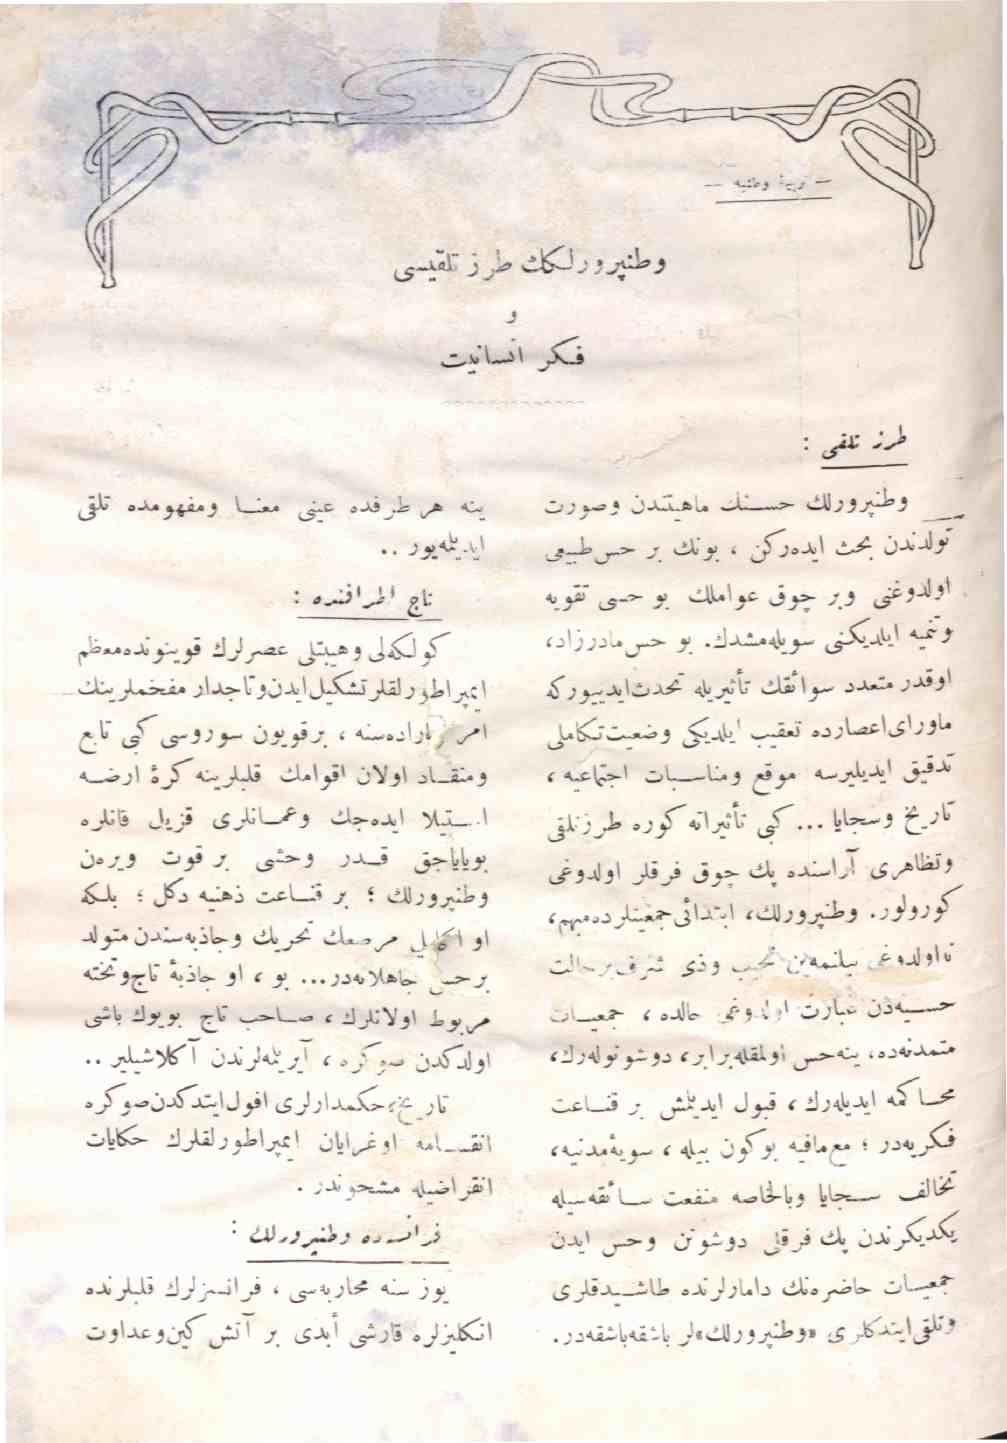 — تربیهٔ وطنیه —
وطنپرورلكك طرز تلقیسی
و
فكر انسانیت
طرز تلقی :
وطنپرورلك حسنك ماهیتندن وصورت
تولدندن بحث ایده‌ركن ، بونك بر حس طبیعی
اولدوغنی وبر چوق عواملك بو حسی تقویه
وتنمیه ایلدیكنی سویله‌مشدك. بو حس مادرزاد،
اوقدر متعدد سوائقك تأثیریله تحدث ایدییوركه
ماورای اعصارده تعقیب ایلدیكی وضعیت تكاملی
تدقیق ایدیلیرسه موقع ومناسبات اجتماعیه ،
تاریخ وسجایا ... كبی تأثیراته كوره طرز تلقی
وتظاهری آراسنده پك چوق فرقلر اولدوغی
كورولور. وطنپرورلك، ابتدائی جمعیتلرده مبهم،
نه اولدوغی بیلنمه‌ین نجیب وذی شرف بر حالت
حسیه‌دن عبارت اولدوغی حالده ، جمعیات
متمدنه‌ده، ینه حس اولمقله برابر، دوشونوله‌رك،
محاكمه ایدیله‌رك ، قبول ایدیلمش بر قناعت
فكریه‌در ؛ مع‌مافیه بوكون بیله ، سویهٔ مدنیه،
تخالف سجایا وبالخاصه منفعت سائقه‌سیله
یكدیكرندن پك فرقلی دوشونن وحس ایدن
جمعیات حاضره‌نك دامارلرنده طاشیدقلری
وتلقی ایتدكلری «وطنپرورلك»لر باشقه باشقه‌در.
ینه هر طرفده عینی معنا ومفهومده تلقی
ایدیلمه‌یور ..
تاج اطرافنده :
كولكه‌لی وهیبتلی عصرلرك قوینونده معظم
ایمپراطورلقلر تشكیل ایدن وتاجدار مفخملرینك
امر واراده‌سنه ، بر قویون سوروسی كبی تابع
ومنقاد اولان اقوامك قلبلرینه كرهٔ ارضه
استیلا ایده‌جك وعمانلری قزیل قانلره
بویایاجق قدر وحشی بر قوت ویره‌ن
وطنپرورلك ؛ بر قناعت ذهنیه دكل ؛ بلكه
او اكلیل مرصعك تحریك وجاذبه‌سندن متولد
بر حس جاهلانه‌در... بو ، او جاذبهٔ تاج وتخته
مربوط اولانلرك ، صاحب تاج بویوك باشی
اولدكدن صوكره ، آیریلمه‌لرندن آكلاشیلیر ..
تاریخ، حكمدارلری افول ایتدكدن صوكره
انقسامه اوغرایان ایمپراطورلقلرك حكایات
انقراضیله مشحوندر .
فرانسه‌ده وطنپرورلك :
یوز سنه محاربه‌سی ، فرانسزلرك قلبلرنده
انكلیزلره قارشی أبدی بر آتش كین وعداوت